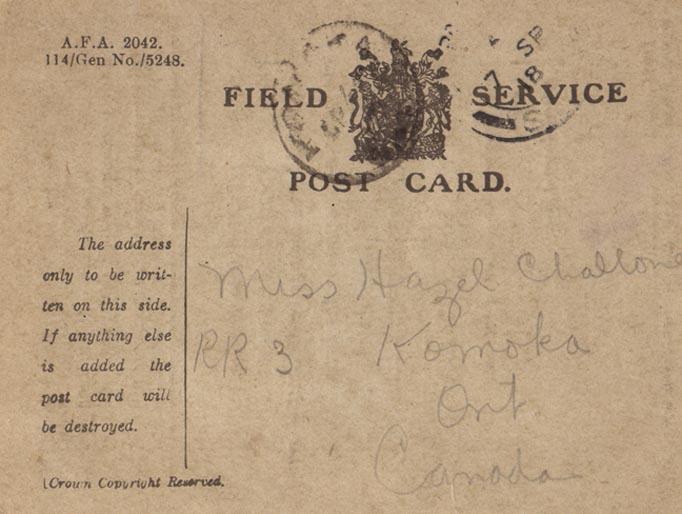 A.F.A. 2042.
114/Gen No./5248.
SP
7 18
FIELD SERVICE
POST CARD.
The address
only to be writ-
ten on this side.
If anything else
is added the
post card will
be destroyed.
Miss Hazel
RR 3 Komoka
Ont.
Canada
(Crown Copyright Reserved.